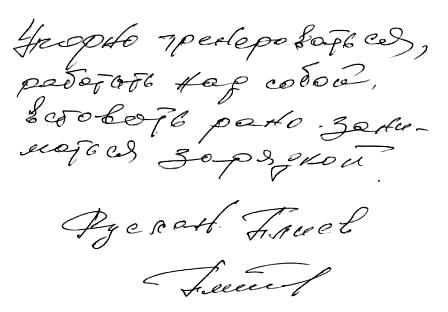 Упорно тренероваться,
работать над собой,
вставать рано. зани-
маться зарядкой.
Руслан Плиев